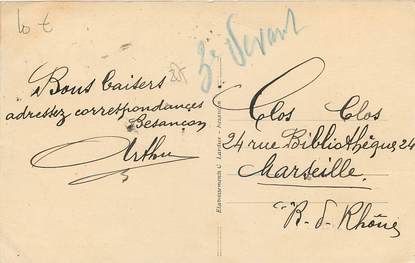 10 f
3e devant
Bons baisers
adressez correspondances
Besançon
Arthur
Clos Clos
24 rue Bibliothèque 24
Marseille.
B.-d.-Rhône
Etablissements C. Lardier - Besançon